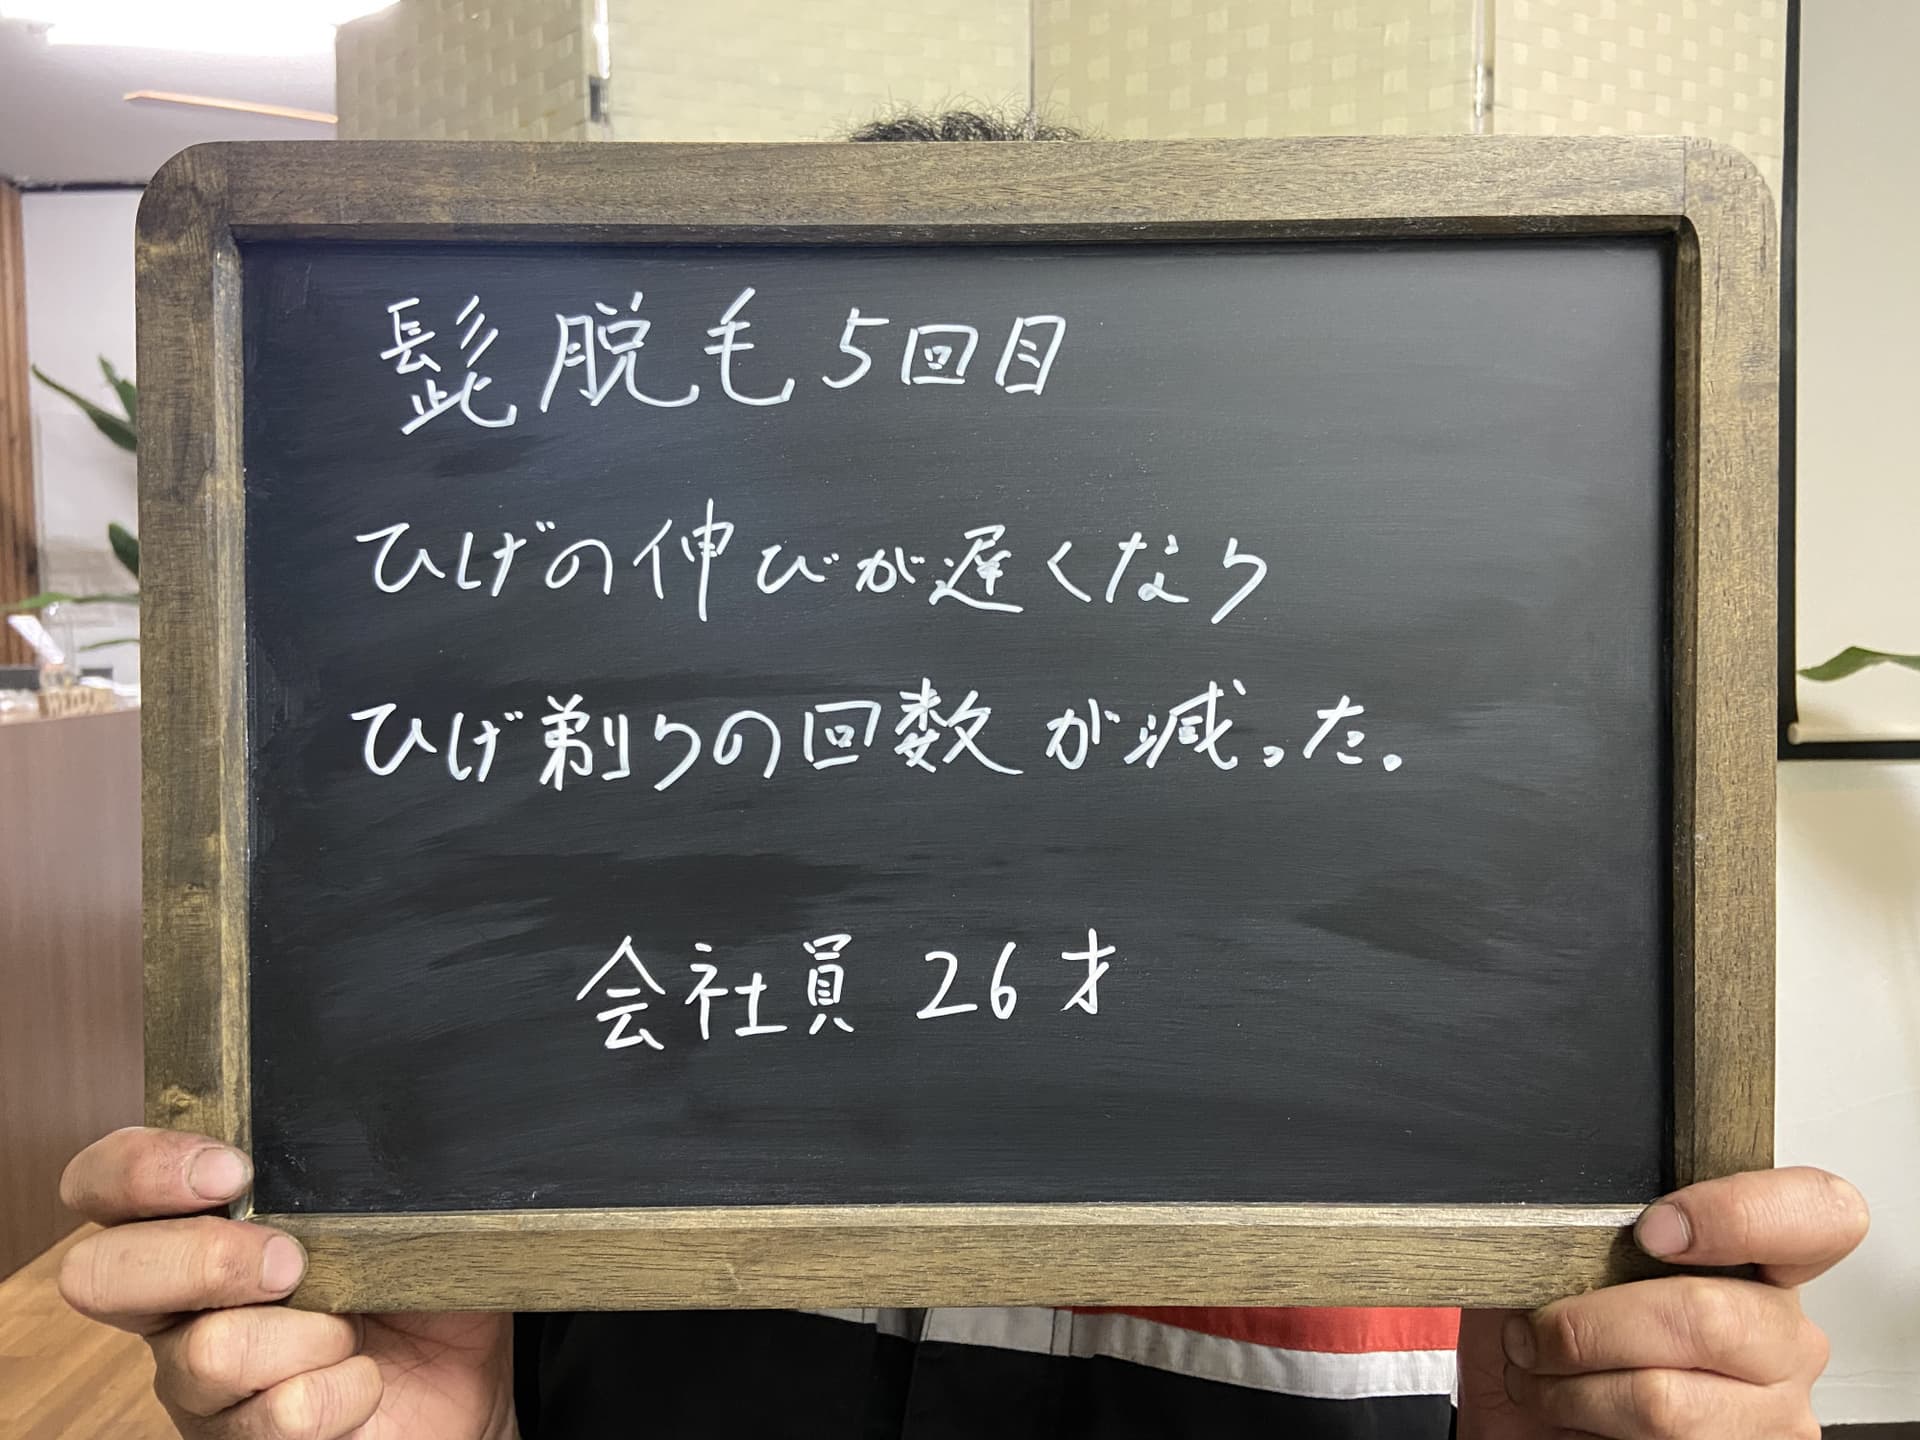 髭脱毛5回目
ひげの伸びが遅くなり
ひげ剃りの回数が減った。
会社員 26才